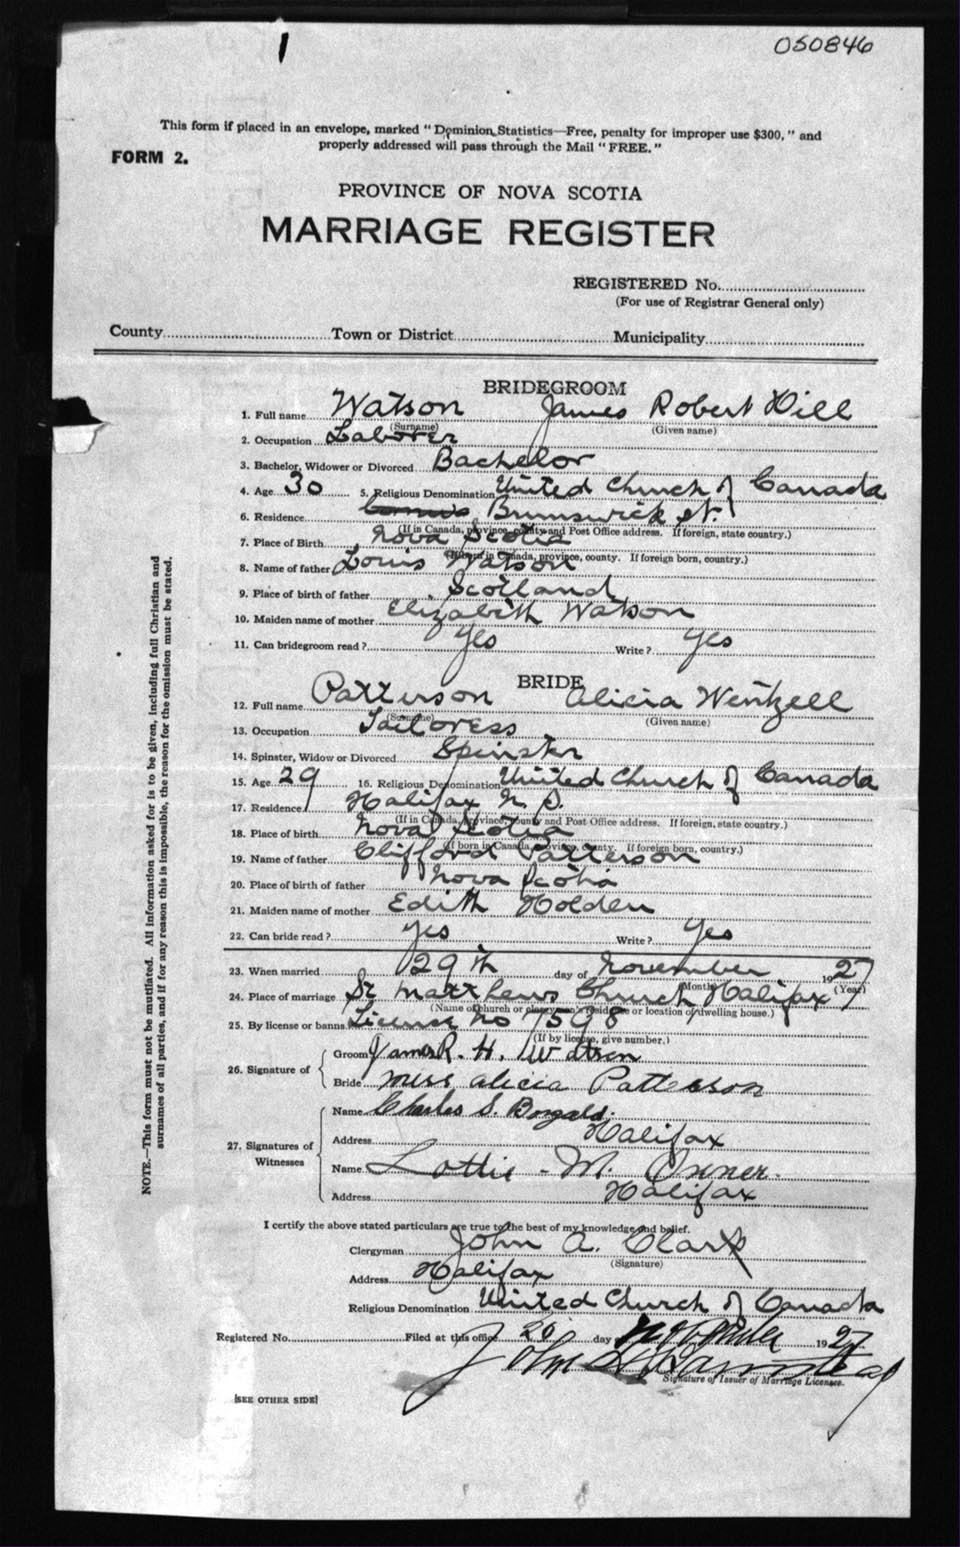 1
050846
This form if placed in an envelope, marked "Dominion Statistics—Free, penalty for improper use $300," and
properly addressed will pass through the Mail "FREE."
FORM 2.
PROVINCE OF NOVA SCOTIA
MARRIAGE REGISTER
REGISTERED No.
(For use of Registrar General only)
County Town or District Municipality
BRIDEGROOM
1. Full name Watson James Robert Hill
(Surname) (Given name)
2. Occupation Laborer
3. Bachelor, Widower or Divorced Bachelor
4. Age 30 5. Religious Denomination United Church of Canada
6. Residence Brunswick St.
(If in Canada, province, county and Post Office address. If foreign, state country.)
7. Place of Birth Nova Scotia
(If born in Canada, province, county. If foreign born, country.)
8. Name of father Louis Watson
9. Place of birth of father Scotland
10. Maiden name of mother Elizabeth Watson
11. Can bridegroom read? Yes Write? Yes
BRIDE
12. Full name Patterson Alicia Wentzell
(Surname) (Given name)
13. Occupation Tailoress
14. Spinster, Widow or Divorced Spinster
15. Age 29 16. Religious Denomination United Church of Canada
17. Residence Halifax N. S.
(If in Canada, province, county and Post Office address. If foreign, state country.)
18. Place of birth Nova Scotia
(If born in Canada, province, county. If foreign born, country.)
19. Name of father Clifford Patterson
20. Place of birth of father Nova Scotia
21. Maiden name of mother Edith Holden
22. Can bride read? Yes Write? Yes
23. When married 29th day of November 1927
(Month) (Year)
24. Place of marriage St Matthews Church Halifax
(Name of church or clergyman's residence or location of dwelling house.)
25. By license or banns License no 7598
(If by license, give number.)
26. Signature of Groom James R. H. Watson
Bride Miss Alicia Patterson
27. Signatures of Witnesses
Name Charles S.
Address Halifax
Name Lottie M.
Address Halifax
I certify the above stated particulars are true to the best of my knowledge and belief.
Clergyman John A. Clark
(Signature)
Address Halifax
Religious Denomination United Church of Canada
Registered No. Filed at this office day November 1927
John
Signature of Issuer of Marriage Licenses.
[SEE OTHER SIDE]
NOTE.—This form must not be mutilated. All information asked for is to be given, including full Christian and
surnames of all parties, and if for any reason this is impossible, the reason for the omission must be stated.